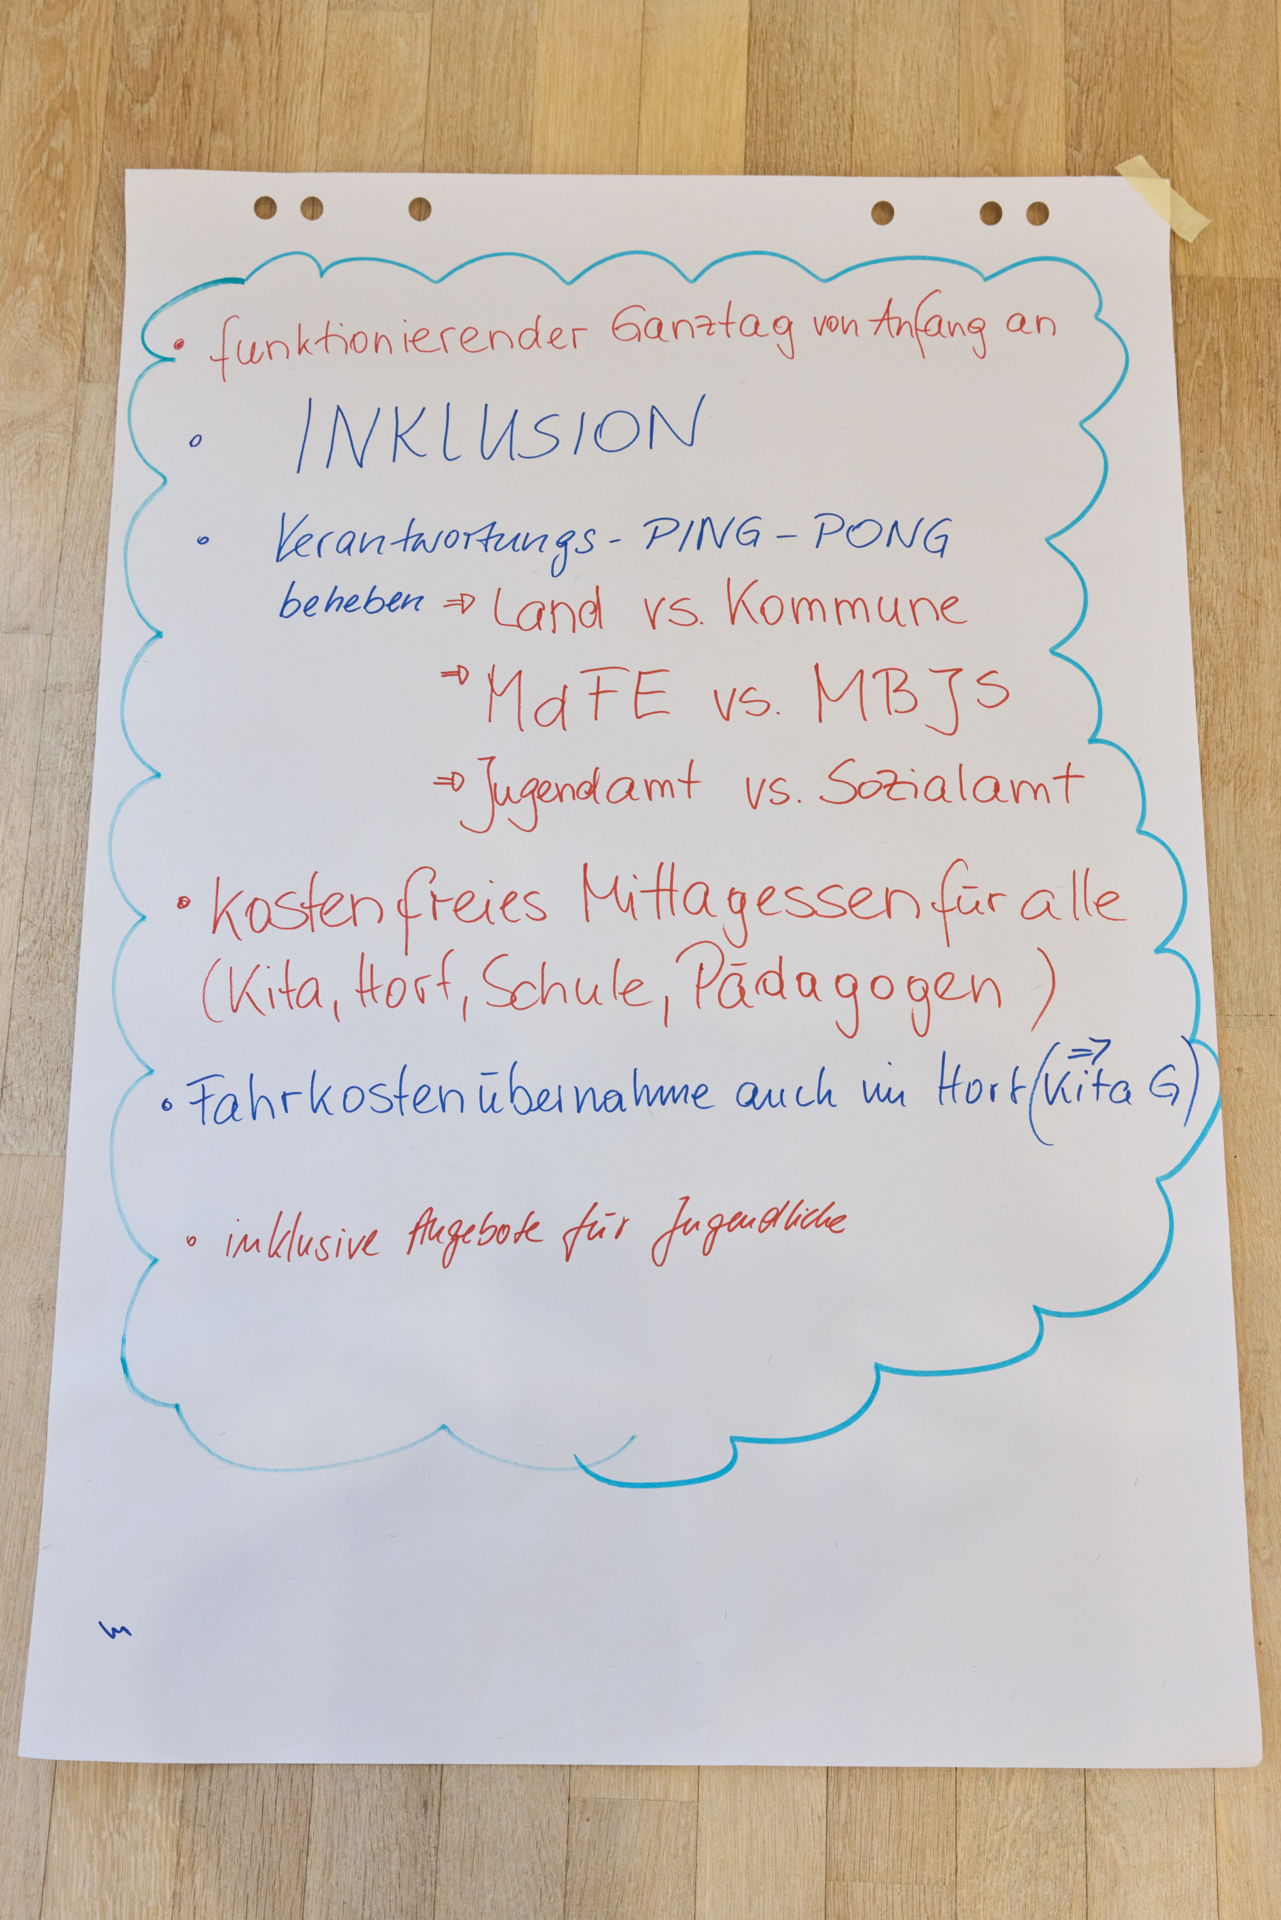 • funktionierender Ganztag von Anfang an
• INKLUSION
• Verantwortungs - PING - PONG
beheben ⇒ Land vs. Kommune
⇒ MdFE vs. MBJS
⇒ Jugendamt vs. Sozialamt
• Kostenfreies Mittagessen für alle
(Kita, Hort, Schule, Pädagogen)
• Fahrkostenübernahme auch im Hort (⇒ Kita G)
• inklusive Angebote für Jugendliche